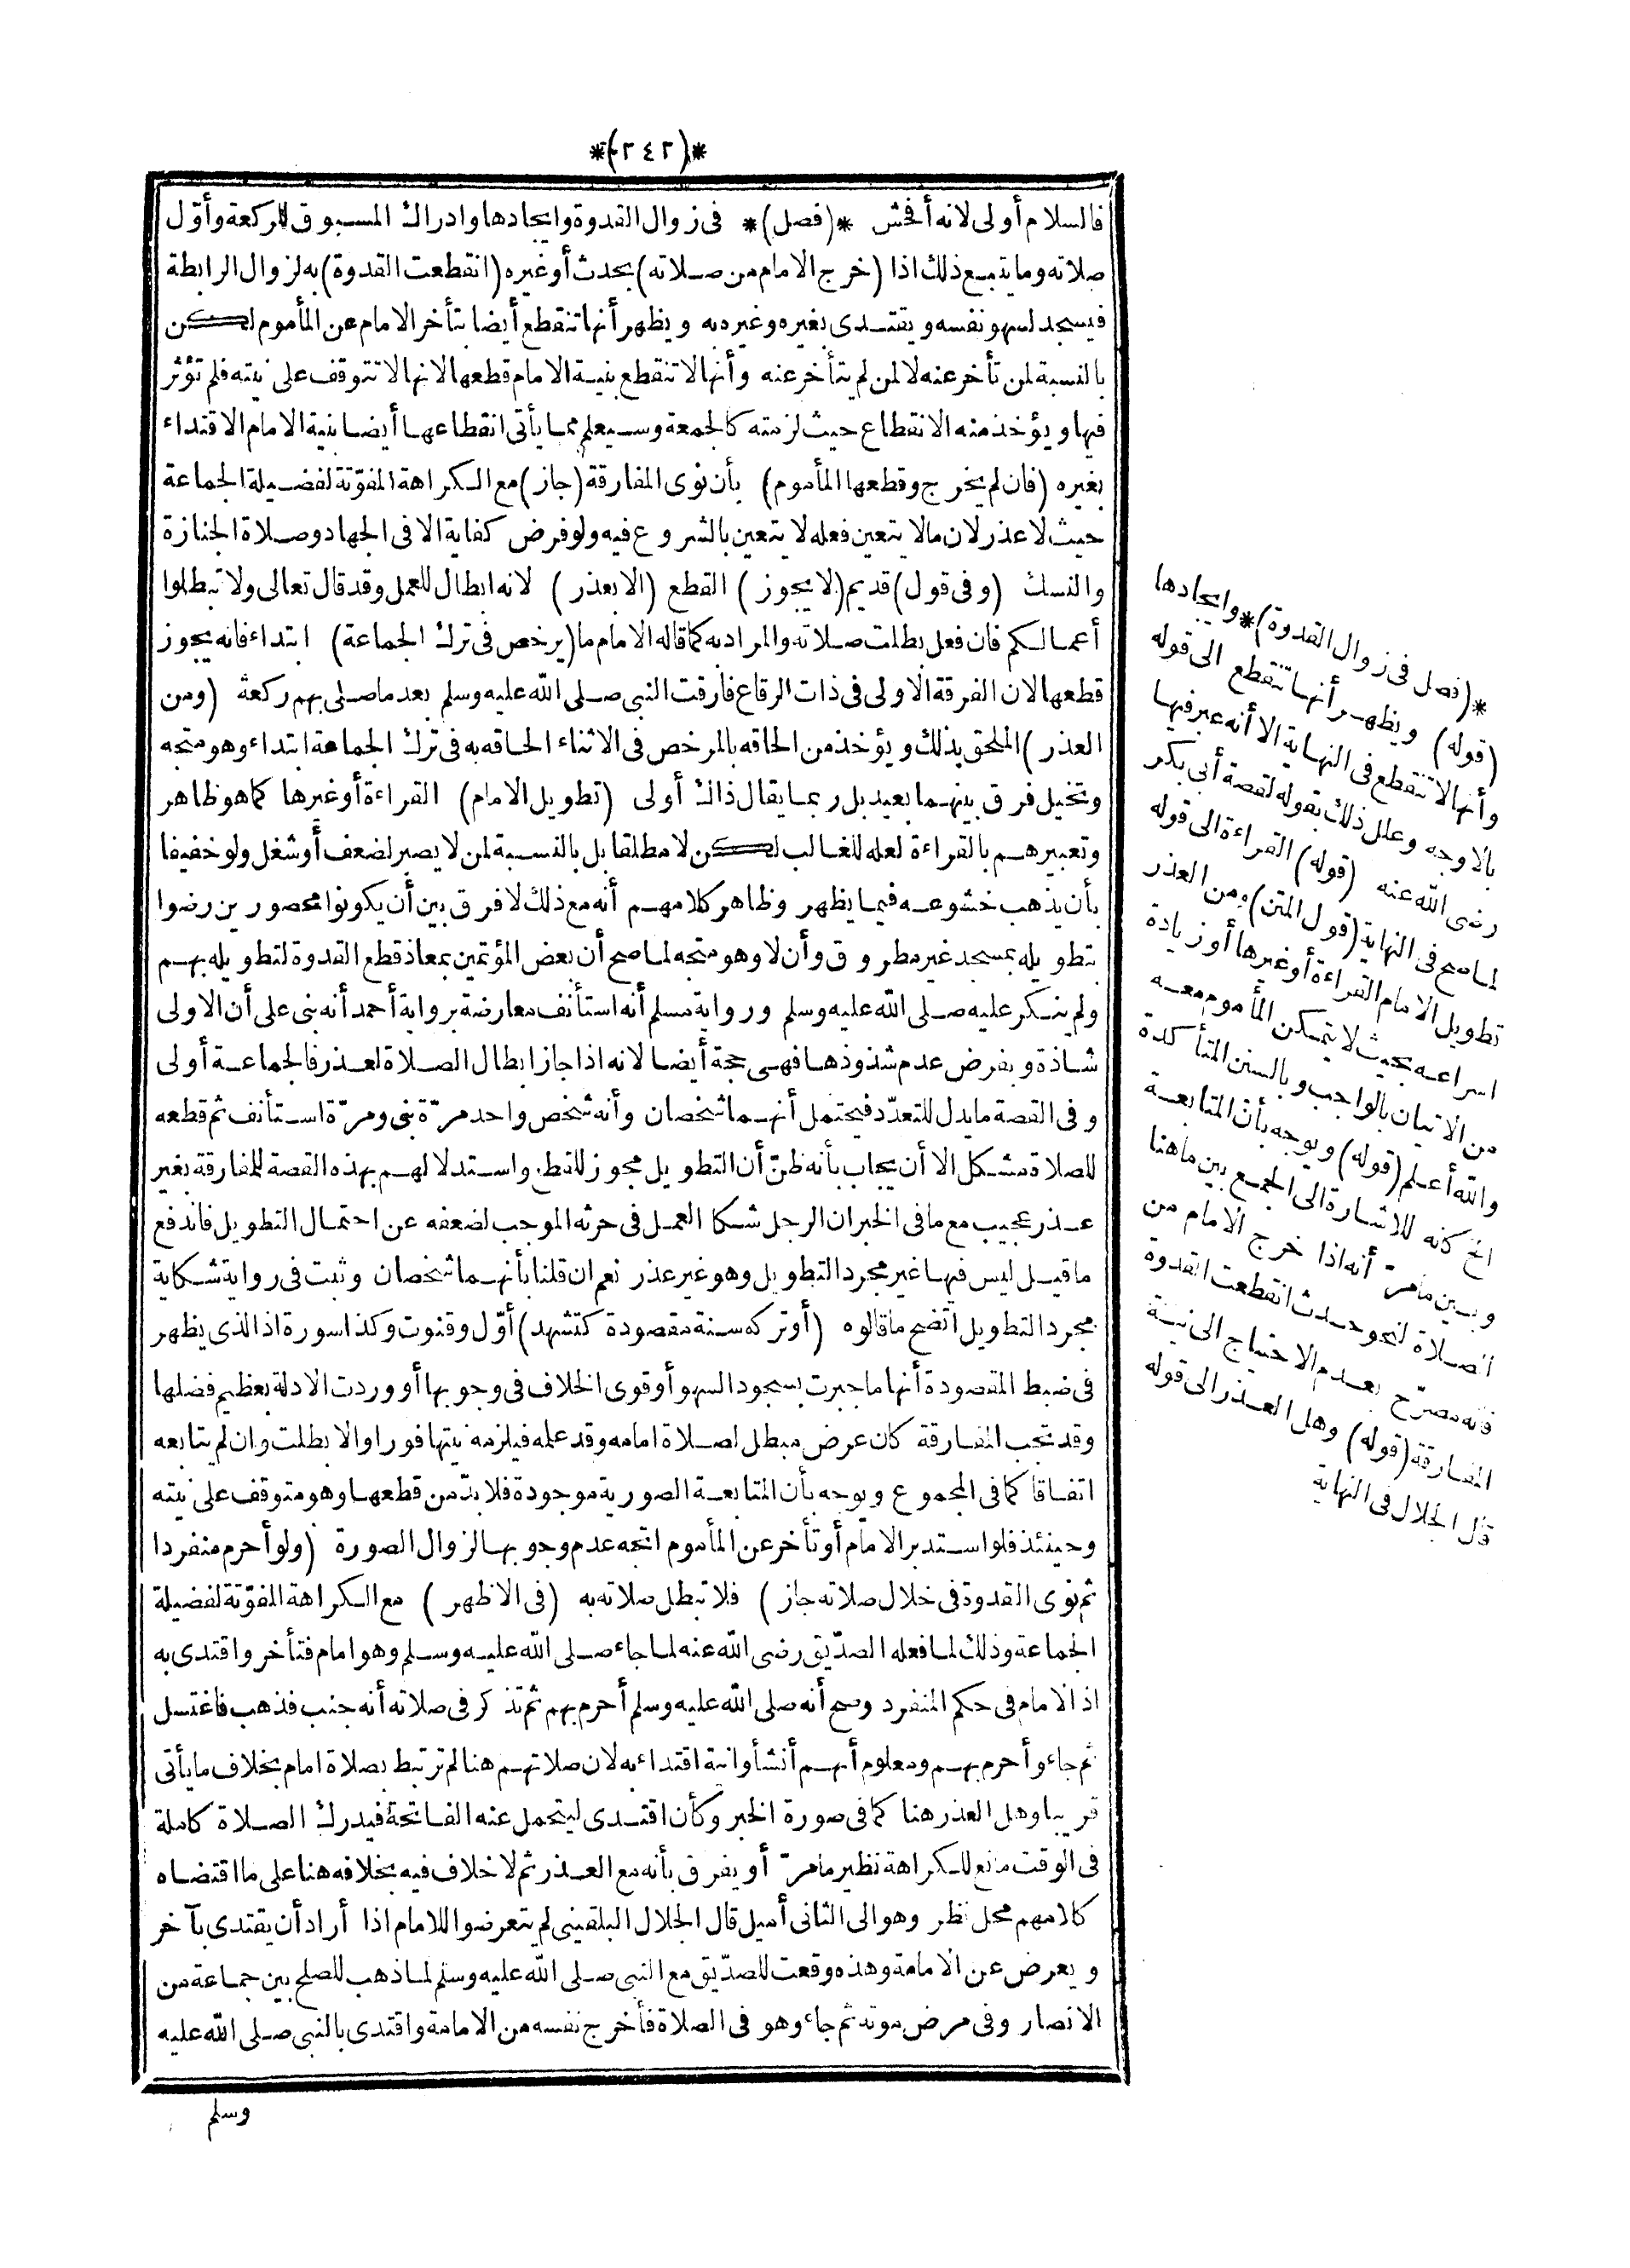 *(٢٤٢)*
فالسلام أولى لانه أفحش *(فصل)* فى زوال القدوة وايجادها وادراك المسبوق للركعة وأوّل
صلاته وما يتبع ذلك اذا (خرج الامام من صلاته) بحدث أو غيره (انقطعت القدوة) به لزوال الرابطة
فيسجد لسهو نفسه ويقتدى بغيره وغيره به ويظهر أنها تنقطع أيضا بتأخر الامام عن المأموم لكن
بالنسبة لمن تأخر عنه لا لمن لم يتأخر عنه وأنها لا تنقطع بنية الامام قطعها لانها لا تتوقف على نيته فلم تؤثر
فيها ويؤخذ منه الانقطاع حيث لزمته كالجمعة وسيعلم مما يأتى انقطاعها أيضا بنية الامام الاقتداء
بغيره (فان لم يخرج وقطعها المأموم) بأن نوى المفارقة (جاز) مع الكراهة المفوّتة لفضيلة الجماعة
حيث لا عذر لان ما لا يتعين فعله لا يتعين بالشروع فيه ولو فرض كفاية الا فى الجهاد وصلاة الجنازة
والنسك (وفى قول) قديم (لا يجوز) القطع (الا بعذر) لانه ابطال للعمل وقد قال تعالى ولا تبطلوا
أعمالكم فان فعل بطلت صلاته والمراد به كما قاله الامام ما (يرخص فى ترك الجماعة) ابتداء فانه يجوز
قطعها لان الفرقة الاولى فى ذات الرقاع فارقت النبى صلى الله عليه وسلم بعد ما صلى بهم ركعة (ومن
العذر) الملحق بذلك ويؤخذ من الحاقه بالمرخص فى الاثناء الحاقه به فى ترك الجماعة ابتداء وهو متجه
وتخيل فرق بينهما بعيد بل ربما يقال ذاك أولى (تطويل الامام) القراءة أو غيرها كما هو ظاهر
وتعبيرهم بالقراءة لعله للغالب لكن لا مطلقا بل بالنسبة لمن لا يصبر لضعف أو شغل ولو خفيفا
بأن يذهب خشوعه فيما يظهر وظاهر كلامهم أنه مع ذلك لا فرق بين أن يكونوا محصورين رضوا
بتطويله بمسجد غير مطروق وأن لا وهو متجه لما صح أن بعض المؤتمين بمعاذ قطع القدوة لتطويله بهم
ولم ينكر عليه صلى الله عليه وسلم ورواية مسلم أنه استأنف معارضة برواية أحمد أنه بنى على أن الاولى
شاذة وبفرض عدم شذوذها فهى حجة أيضا لانه اذا جاز ابطال الصلاة لعذر فالجماعة أولى
وفى القصة ما يدل للتعدّد فيحتمل أنهما شخصان وأنه شخص واحد مرّة بنى ومرّة استأنف ثم قطعه
للصلاة مشكل الا أن يجاب بأنه ظنّ أن التطويل مجوز للقطع واستدلالهم بهذه القصة للمفارقة بغير
عذر عجيب مع ما فى الخبر ان الرجل شكا العمل فى حرثه الموجب لضعفه عن احتمال التطويل فاندفع
ما قيل ليس فيها غير مجرد التطويل وهو غير عذر نعم ان قلنا بأنهما شخصان وثبت فى رواية شكاية
مجرد التطويل اتضح ما قالوه (أو تركه سنة مقصودة كتشهد) أوّل وقنوت وكذا سورة اذ الذى يظهر
فى ضبط المقصودة أنها ما جبرت بسجود السهو أو قوى الخلاف فى وجوبها أو وردت الادلة بعظيم فضلها
وقد تجب المفارقة كان عرض مبطل لصلاة امامه وقد علمه فيلزمه نيتها فورا والا بطلت وان لم يتابعه
اتفاقا كما فى المجموع ويوجه بأن المتابعة الصورية موجودة فلا بدّ من قطعها وهو متوقف على نيته
وحينئذ فلو استدبر الامام أو تأخر عن المأموم اتجه عدم وجوبها لزوال الصورة (ولو أحرم منفردا
ثم نوى القدوة فى خلال صلاته جاز) فلا تبطل صلاته به (فى الاظهر) مع الكراهة المفوّتة لفضيلة
الجماعة وذلك لما فعله الصدّيق رضى الله عنه لما جاء صلى الله عليه وسلم وهو امام فتأخر واقتدى به
اذ الامام فى حكم المنفرد وصح أنه صلى الله عليه وسلم أحرم بهم ثم تذكر فى صلاته أنه جنب فذهب فاغتسل
ثم جاء وأحرم بهم ومعلوم أنهم أنشأوا نية اقتداء به لان صلاتهم هنا لم ترتبط بصلاة امام بخلاف ما يأتى
قريبا وهل العذر هنا كما فى صورة الخبر وكأن اقتدى ليتحمل عنه الفاتحة فيدرك الصلاة كاملة
فى الوقت مانع للكراهة نظير ما مرّ أو يفرق بأنه مع العذر ثم لا خلاف فيه بخلافه هنا على ما اقتضاه
كلامهم محل نظر وهو الى الثانى أميل قال الجلال البلقينى لم يتعرضوا للامام اذا أراد أن يقتدى بآخر
ويعرض عن الامامة وهذه وقعت للصدّيق مع النبى صلى الله عليه وسلم لما ذهب للصلح بين جماعة من
الانصار وفى مرض موته ثم جاء وهو فى الصلاة فأخرج نفسه من الامامة واقتدى بالنبى صلى الله عليه
وسلم
*(فصل فى زوال القدوة)* وايجادها
(قوله) ويظهر أنها تنقطع الى قوله
وأنها لا تنقطع فى النهاية الا أنه عبر فيها
بالاوجه وعلل ذلك بقوله لقصة أبى بكر
رضى الله عنه (قوله) القراءة الى قوله
لما صح فى النهاية (قول المتن) ومن العذر
تطويل الامام القراءة أو غيرها أو زيادة
اسراعه بحيث لا يتمكن المأموم معه
من الاتيان بالواجب وبالسنن المتأكدة
والله أعلم (قوله) ويوجه بأن المتابعة
الخ كانه للاشارة الى الجمع بين ما هنا
وبين ما مرّ أنه اذا خرج الامام من
الصلاة لنحو حدث انقطعت القدوة
فانه مصرّح بعدم الاحتياج الى نية
المفارقة (قوله) وهل العذر الى قوله
قال الجلال فى النهاية